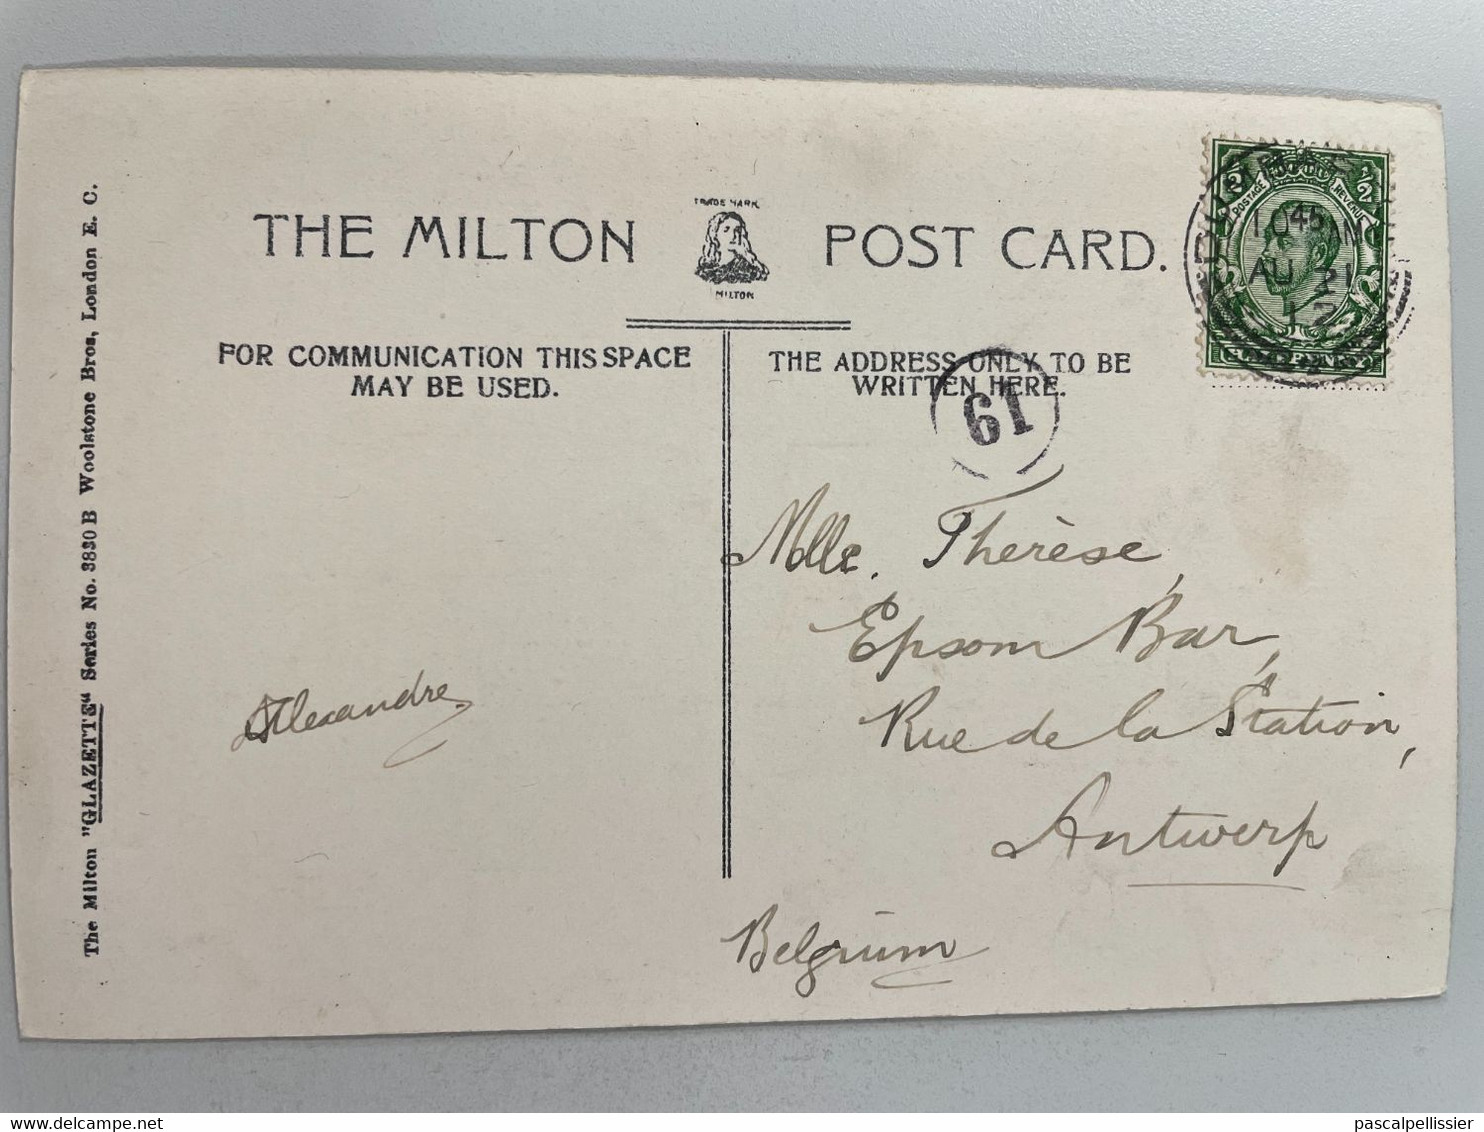 TRADE MARK
THE MILTON POST CARD.
MILTON
FOR COMMUNICATION THIS SPACE
MAY BE USED.
THE ADDRESS ONLY TO BE
WRITTEN HERE.
61
POSTAGE REVENUE
10 45 AM
AU 21
12
Mlle. Thérèse,
Epsom Bar,
Rue de la Station,
Antwerp
Belgium
Alexandre
The Milton "GLAZETTE" Series No. 3830 B Woolstone Bros, London E. C.
delcampe.net
pascalpellissier